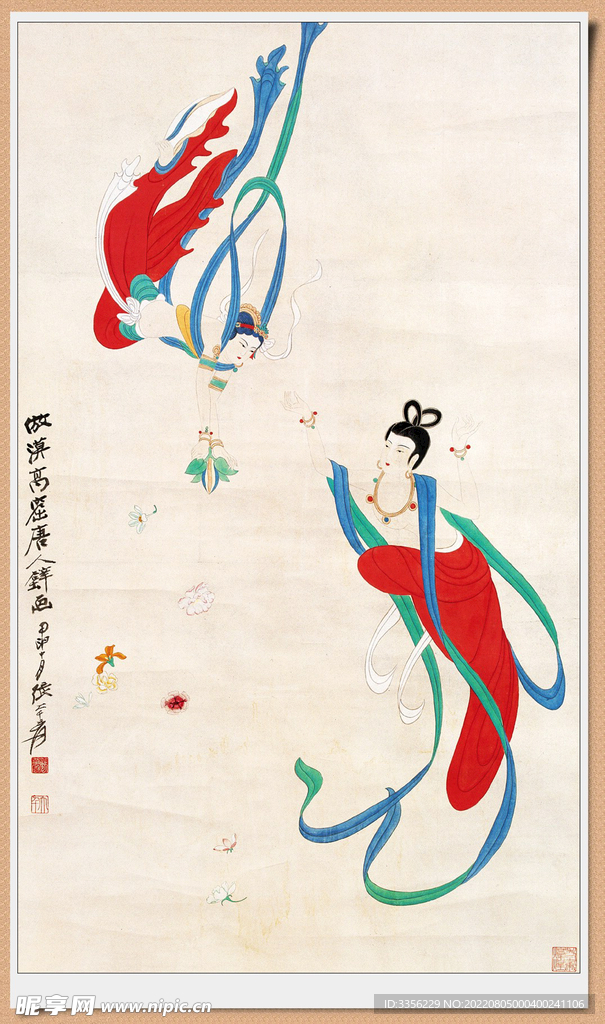 倣漠高窟唐人壁画
甲申十月張大千爰
昵享网 www.nipic.cn
ID:3356229 NO:20220805000400241106